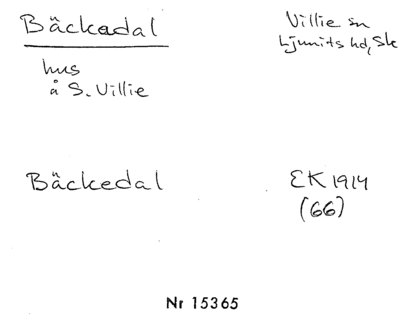 Bäckadal
Villie sn
Ljunits hd, Sk
hus
å S. Villie
Bäckedal
EK 1914
(66)
Nr 15365